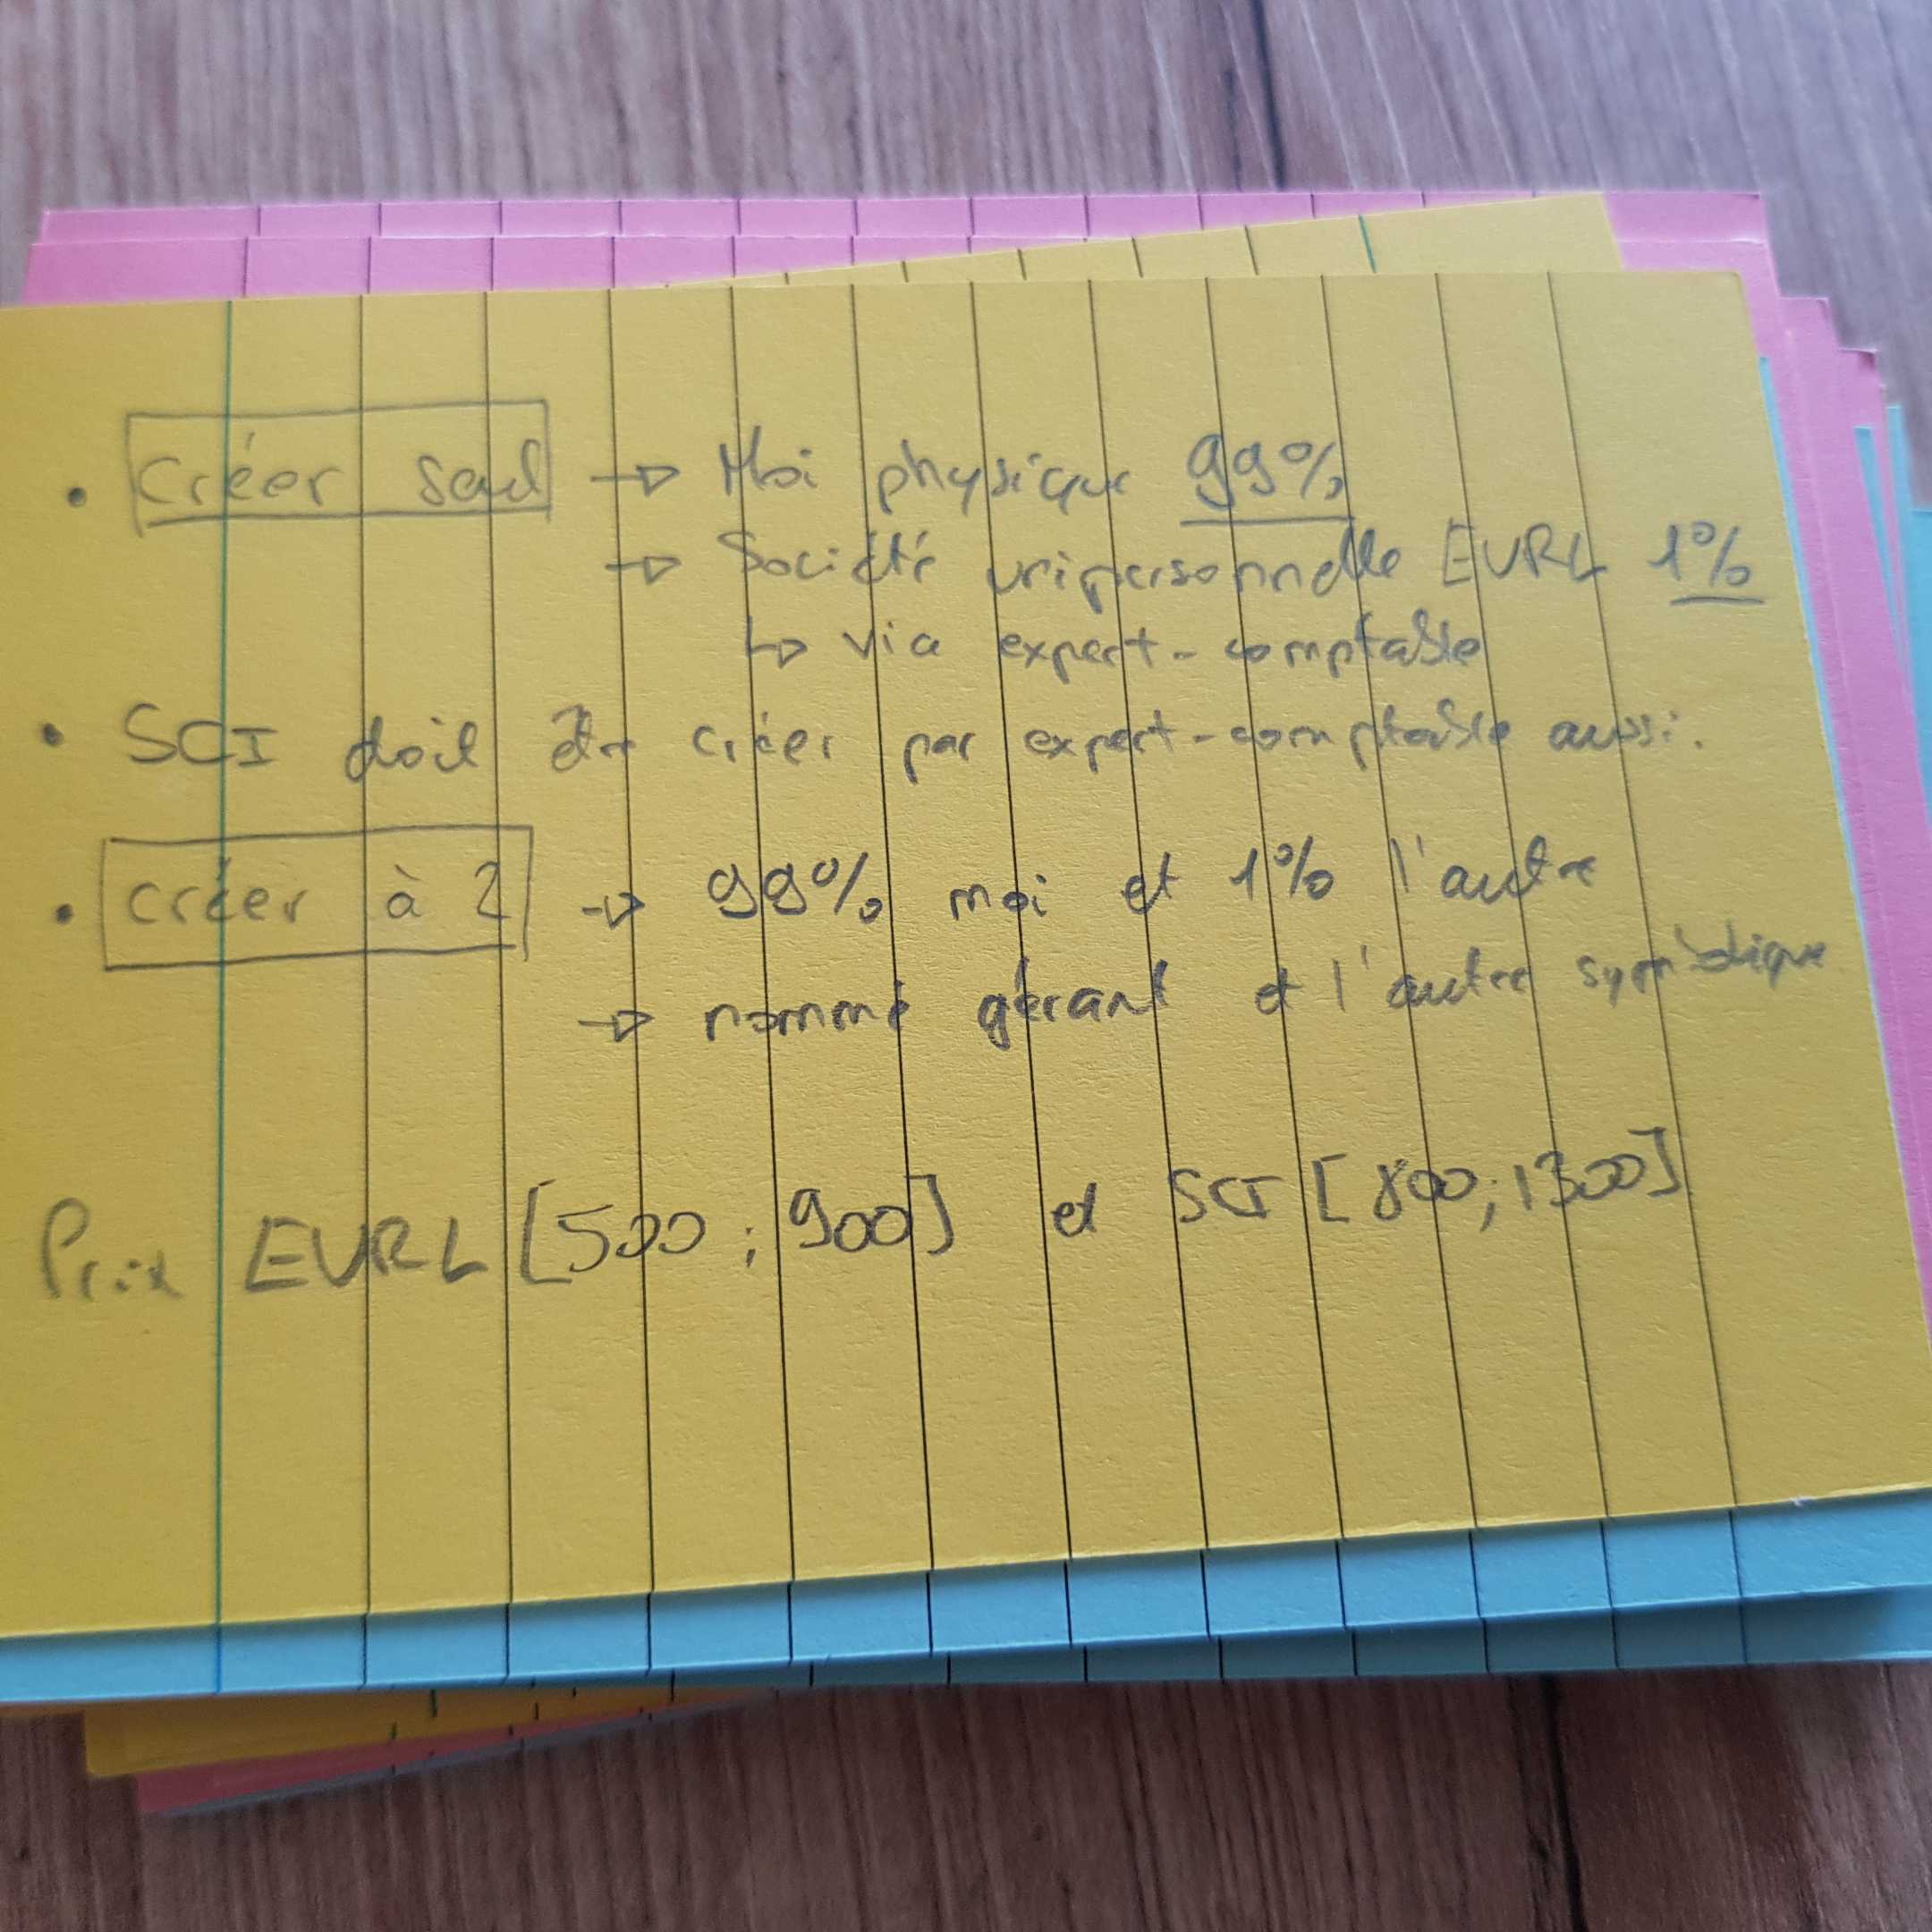 • Créer seul → Moi physique 99%
→ Société unipersonnelle EURL 1%
↳ via expert-comptable
• SCI doit être créer par expert-comptable aussi.
• créer à 2 → 99% moi et 1% l'autre
→ nommé gérant et l'autre symbolique
Prix EURL [500 ; 900] et SCI [800 ; 1300]